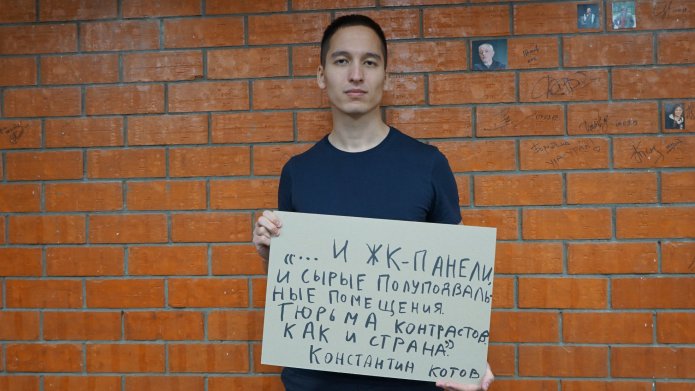 «... И ЖК-ПАНЕЛИ,
И СЫРЫЕ ПОЛУПОДВАЛЬ-
НЫЕ ПОМЕЩЕНИЯ.
ТЮРЬМА КОНТРАСТОВ,
КАК И СТРАНА».
КОНСТАНТИН КОТОВ